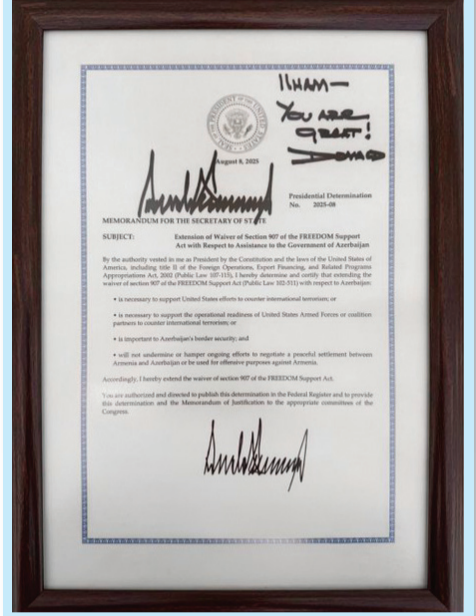 ILHAM—
YOU ARE
GREAT!
DONALD
August 8, 2025
Presidential Determination
No. 2025-08
MEMORANDUM FOR THE SECRETARY OF STATE
SUBJECT: Extension of Waiver of Section 907 of the FREEDOM Support
Act with Respect to Assistance to the Government of Azerbaijan
By the authority vested in me as President by the Constitution and the laws of the United States of
America, including title II of the Foreign Operations, Export Financing, and Related Programs
Appropriations Act, 2002 (Public Law 107-115), I hereby determine and certify that extending the
waiver of section 907 of the FREEDOM Support Act (Public Law 102-511) with respect to Azerbaijan:
• is necessary to support United States efforts to counter international terrorism; or
• is necessary to support the operational readiness of United States Armed Forces or coalition
partners to counter international terrorism; or
• is important to Azerbaijan's border security; and
• will not undermine or hamper ongoing efforts to negotiate a peaceful settlement between
Armenia and Azerbaijan or be used for offensive purposes against Armenia.
Accordingly, I hereby extend the waiver of section 907 of the FREEDOM Support Act.
You are authorized and directed to publish this determination in the Federal Register and to provide
this determination and the Memorandum of Justification to the appropriate committees of the
Congress.